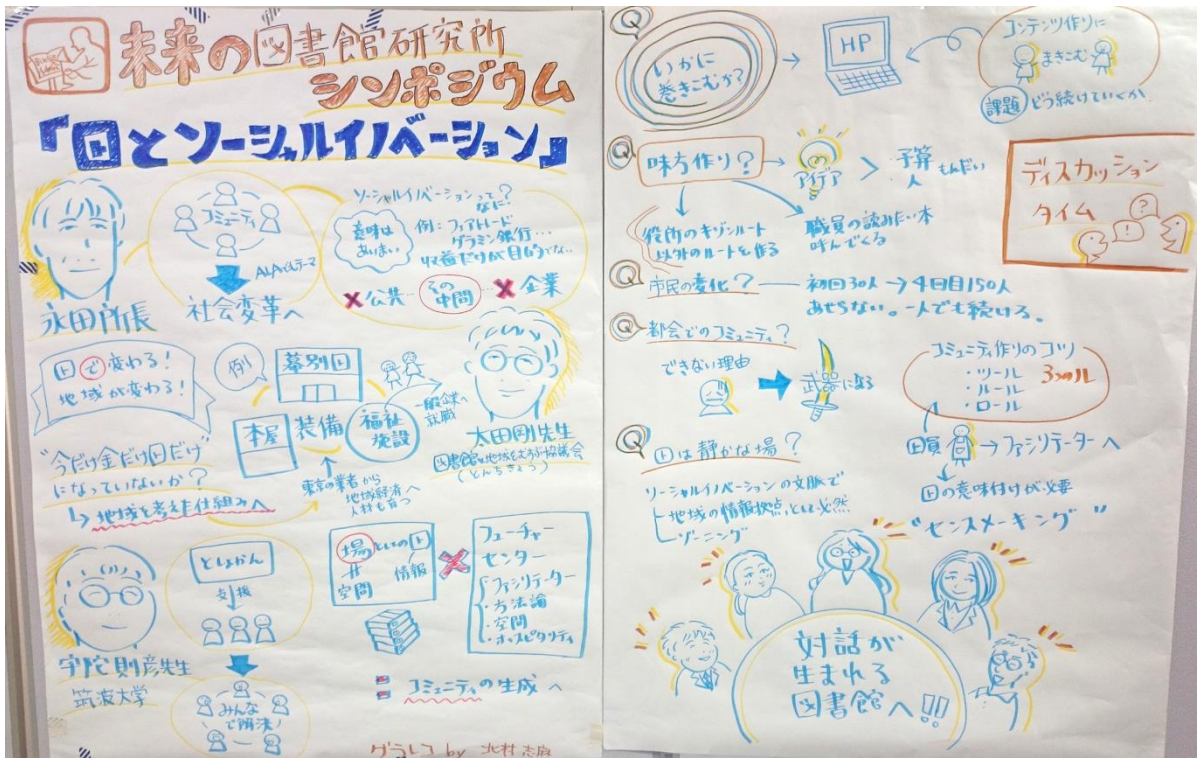 未来の図書館研究所
シンポジウム
「囗とソーシャルイノベーション」
コミュニティ
社会変革へ
永田所長
ソーシャルイノベーションって?
なに
意味は
あいまい
例:フェアトレード
グラミン銀行…
収益だけが目的でない…
×公共…その中間…×企業
囗で変わる!
地域が変わる!
例
幕別囗
本屋
装備
福祉
施設
一般企業へ
就職
太田剛先生
図書館と地域をむすぶ協議会
(とんちきょう)
"今だけ金だけ囗だけ"
になっていないか?
↳地域を考えた仕組みへ
東京の業者から
地域経済へ
人材も育つ
としょかん
支援
宇陀則彦先生
筑波大学
みんな
で解決
場としての囗
≠
空間
情報
×
フューチャー
センター
・ファシリテーター
・方法論
・空間
・ホスピタリティ
=コミュニティの生成へ
グラレコ by 北村志麻
Q
いかに
巻きこむか?
→
HP
コンテンツ作りに
まきこむ
課題 どう続けていくか
Q 味方作り?
→
アイデア
>
予算
人
もんだい
役所のキゾンルート
以外のルートを作る
職員の読みたい本
呼んでくる
ディスカッション
タイム
Q 市民の変化?
初回30人→4回目150人
あせらない。一人でも続ける。
Q 都会でのコミュニティ?
できない理由
武器になる
コミュニティ作りのコツ
・ツール
・ルール
・ロール
3つのル
囗員
→ファシリテーターへ
囗の意味付けが必要
"センスメーキング"
Q 囗は静かな場?
ソーシャルイノベーションの文脈で
地域の情報拠点としては必然
ゾーニング
対話が
生まれる
図書館へ!!